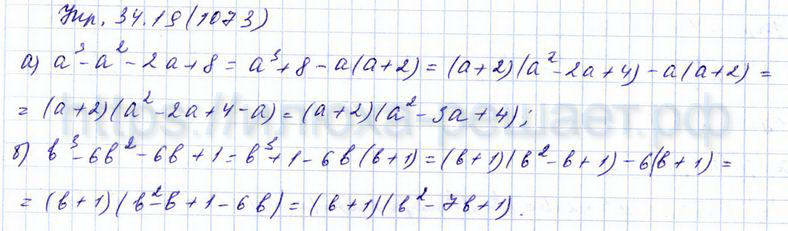 Упр. 34.19(1073)
а) a³-a²-2a+8 = a³+8-a(a+2) = (a+2)(a²-2a+4)-a(a+2) =
= (a+2)(a²-2a+4-a) = (a+2)(a²-3a+4);
б) b³-6b²-6b+1 = b³+1-6b(b+1) = (b+1)(b²-b+1)-6(b+1) =
= (b+1)(b²-b+1-6b) = (b+1)(b²-7b+1).